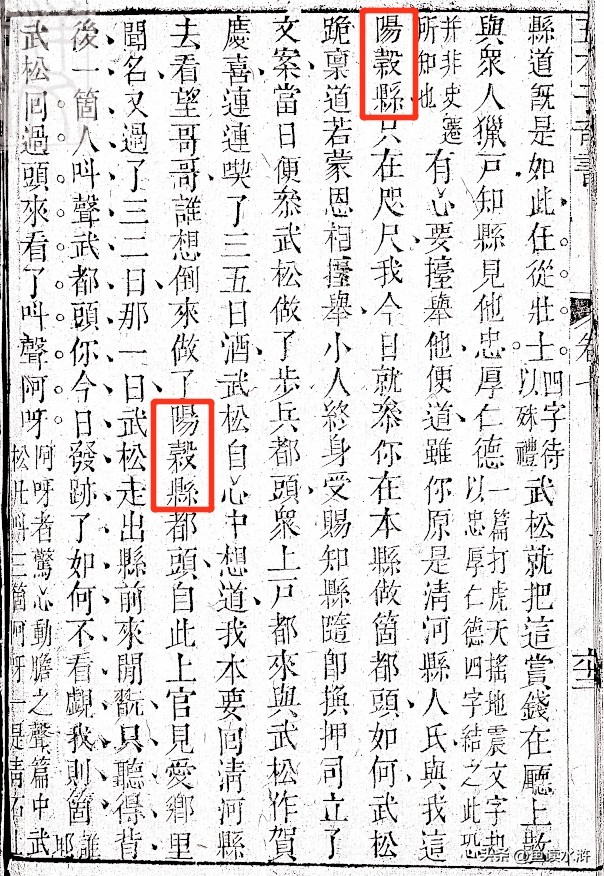 縣道旣是如此任從壯士四字待以殊禮武松就把這賞錢在廳上散
與衆人獵戸知縣見他忠厚仁德一篇打虎天搖地震文字却以忠厚仁德四字結之此恐
並非史遷所知也有心要擡舉他便道雖你原是淸河縣人氏與我這
陽穀縣只在咫尺我今日就叅你在本縣做箇都頭如何武松
跪稟道若蒙恩相擡舉小人終身受賜知縣隨卽換押司立了
文案當日便叅武松做了步兵都頭衆上戸都來與武松作賀
慶喜連連喫了三五日酒武松自心中想道我本要囘淸河縣
去看望哥哥誰想倒來做了陽穀縣都頭自此上官見愛鄉里
聞名又過了三二日那一日武松走出縣前來閒翫只聽得背
後一箇人叫聲武都頭你今日發跡了如何不看覷我則箇誰耶
武松囘過頭來看了叫聲阿呀阿呀者驚心動膽之聲篇中武松
卷七
头条 @重读水浒